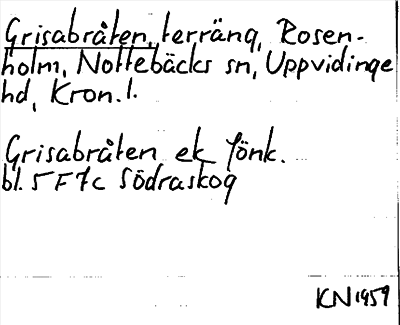 Grisabråten, terräng, Rosen-
holm, Nottebäcks sn, Uppvidinge
hd, Kron. l.
Grisabråten ek Jönk.
bl. 5F7c Södraskog
KN 1959